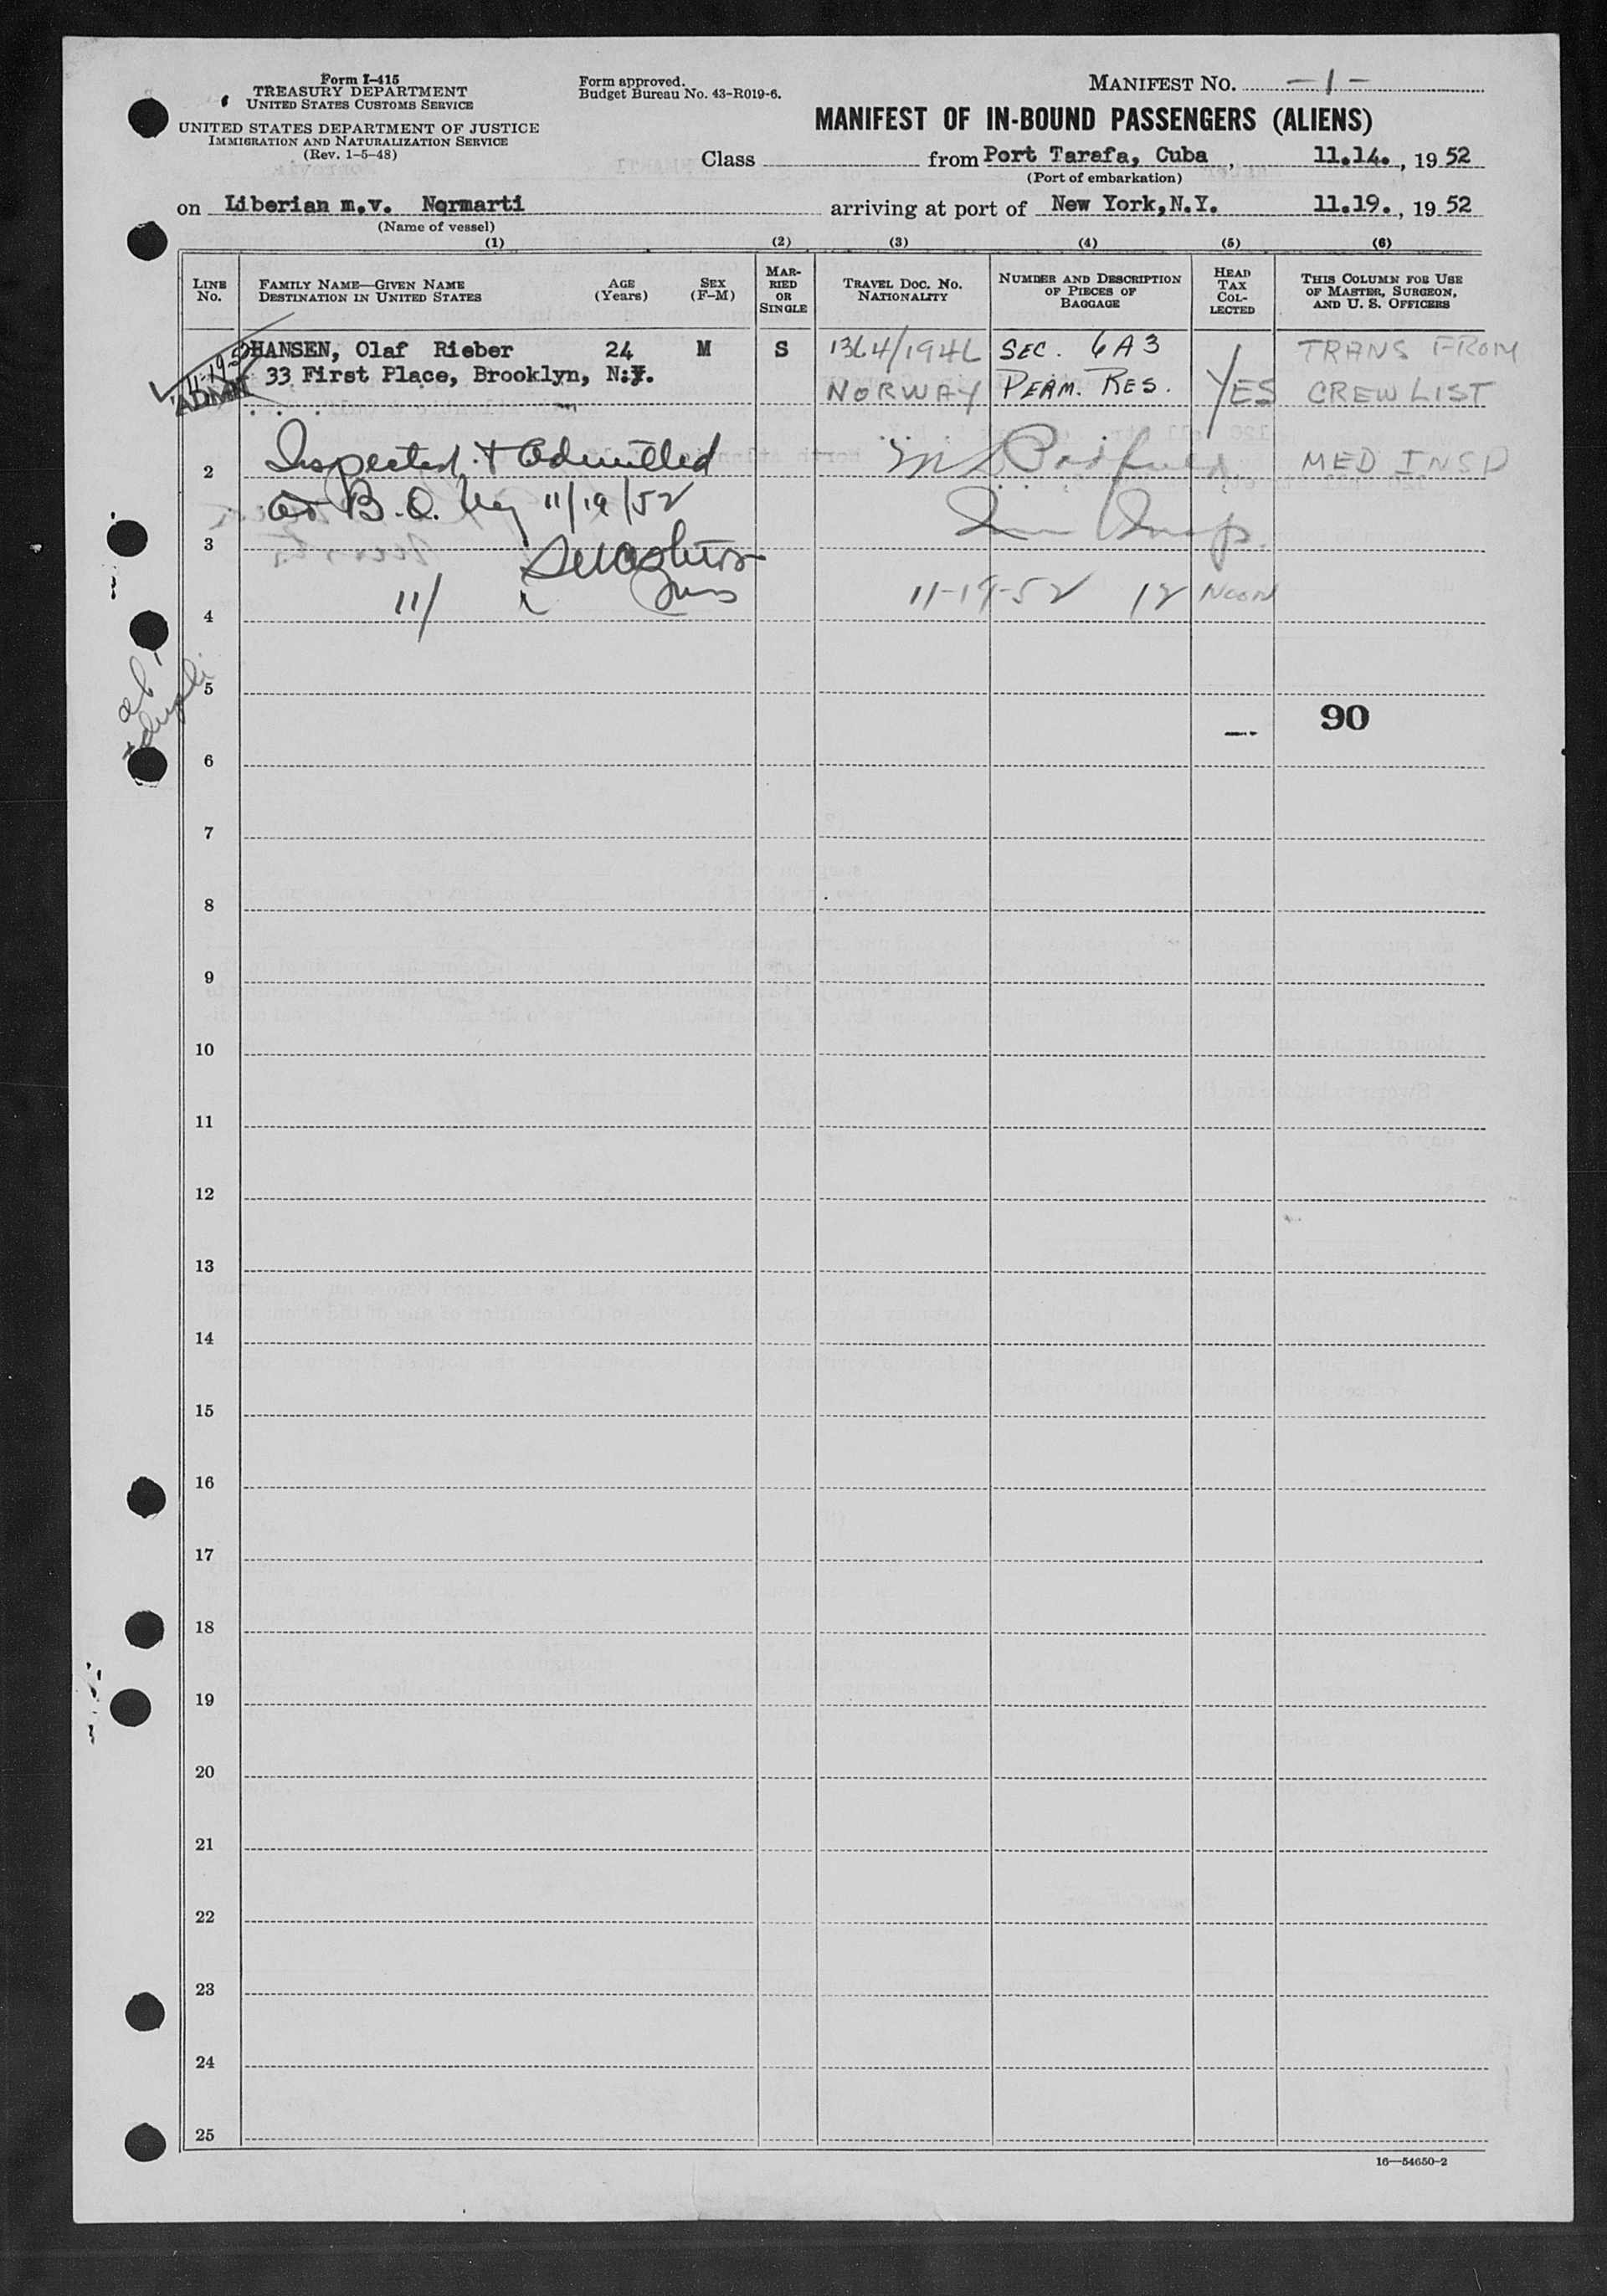 Form I-415
TREASURY DEPARTMENT
UNITED STATES CUSTOMS SERVICE
UNITED STATES DEPARTMENT OF JUSTICE
IMMIGRATION AND NATURALIZATION SERVICE
(Rev. 1-5-48)
Form approved.
Budget Bureau No. 43-R019-6.
MANIFEST NO. -1-
MANIFEST OF IN-BOUND PASSENGERS (ALIENS)
Class from Port Tarafa, Cuba, 11.14., 19 52
(Port of embarkation)
on Liberian m.v. Normarti arriving at port of New York, N.Y. 11.19., 19 52
(Name of vessel)
(1) (2) (3) (4) (5) (6)
LINE No. FAMILY NAME—GIVEN NAME DESTINATION IN UNITED STATES AGE (Years) SEX (F-M) MARRIED OR SINGLE TRAVEL DOC. NO. NATIONALITY NUMBER AND DESCRIPTION OF PIECES OF BAGGAGE HEAD TAX COLLECTED THIS COLUMN FOR USE OF MASTER, SURGEON, AND U. S. OFFICERS
HANSEN, Olaf Rieber 24 M S SEC. 6A3 TRANS FROM
33 First Place, Brooklyn, N.Y. NORWAY PERM. RES. YES CREW LIST
ADMIT
Inspected & Admitted
2 MED INSP
at B.O. 11/19/52
3
11/ 11-19-52 12 NOON
4
5
90
6
7
8
9
10
11
12
13
14
15
16
17
18
19
20
21
22
23
24
25
16—54650-2